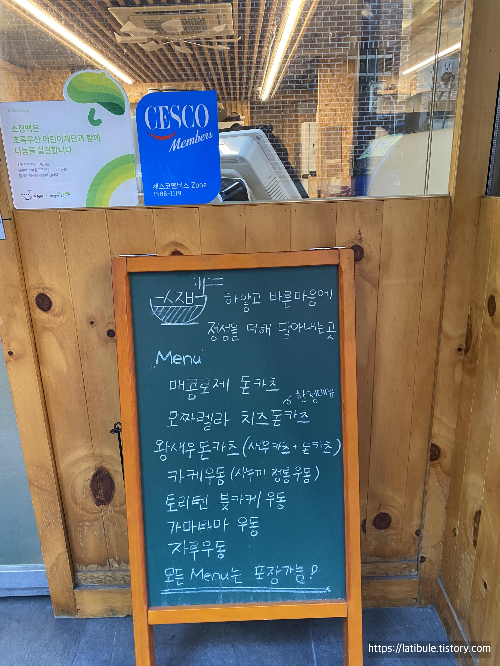 소정백은
초록우산 어린이재단과 함께
나눔을 실천합니다
CESCO
Members
세스코멤버스 Zone
1588-1119
하얗고 바른마음에
정성을 더해 담아내는곳
Menu
매콤로제 돈카츠
모짜렐라 치즈돈카츠
왕새우돈카츠(새우카츠+돈카츠)
카케우동(사누끼 정통우동)
토리텐 붓카케우동
가마타마 우동
자루우동
모든 Menu는 포장가능!
https://latibule.tistory.com